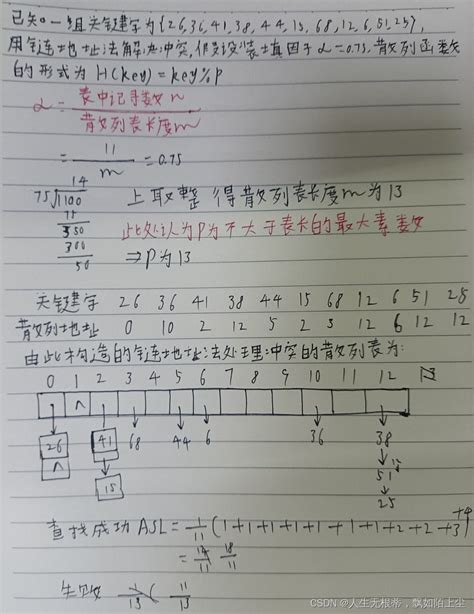 已知一组关键字为{26,36,41,38,44,15,68,12,6,51,25},
用链地址法解决冲突,假设装填因子α=0.75,散列函数
的形式为H(key)=key%P
α= 表中记录数n
散列表长度m
= 11/m =0.75
14
75√1100
75
350
300
50
上取整 得散列表长度m为13
此处认为P为不大于表长的最大素数
⇒P为13
关键字 26 36 41 38 44 15 68 12 6 51 25
散列地址 0 10 2 12 5 2 3 12 6 12 12
由此构造的链地址法处理冲突的散列表为:
0 1 2 3 4 5 6 7 8 9 10 11 12
∧
26 41 68 44 6 36 38
∧ 15 51 12
25
查找成功ASL=1/11(1+1+1+1+1+1+1+2+2+3+4
= 18/11
失败 1/13( 11/13
CSDN @人生无根蒂,飘如陌上尘